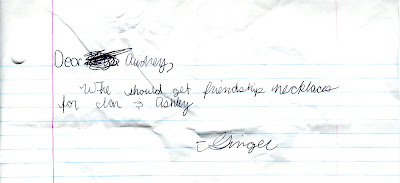 Dear Audrey,
Whe should get friendship necklaces
for clar & Ashley
- Ginger